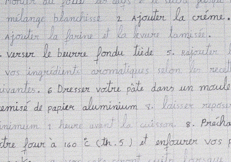 mélange blanchisse 2 Ajouter la crème.
Ajouter la farine et la levure tamisée.
verser le beurre fondu tiède 5. rajouter l
vos ingrédients aromatiques selon les recett
suivantes. 6 Dresser votre pâte dans un moule
chemisé de papier aluminium 7. laisser repos
minimum 1 heure avant la cuisson 8. Précha
otre four a 160°C (th.5) et enfourner vos p